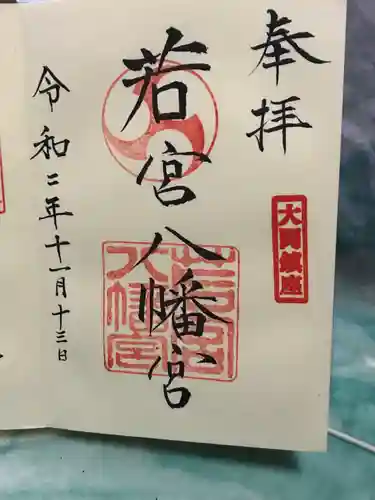 奉拝
若宮八幡宮
若宮
八幡宮
令和二年十一月十三日